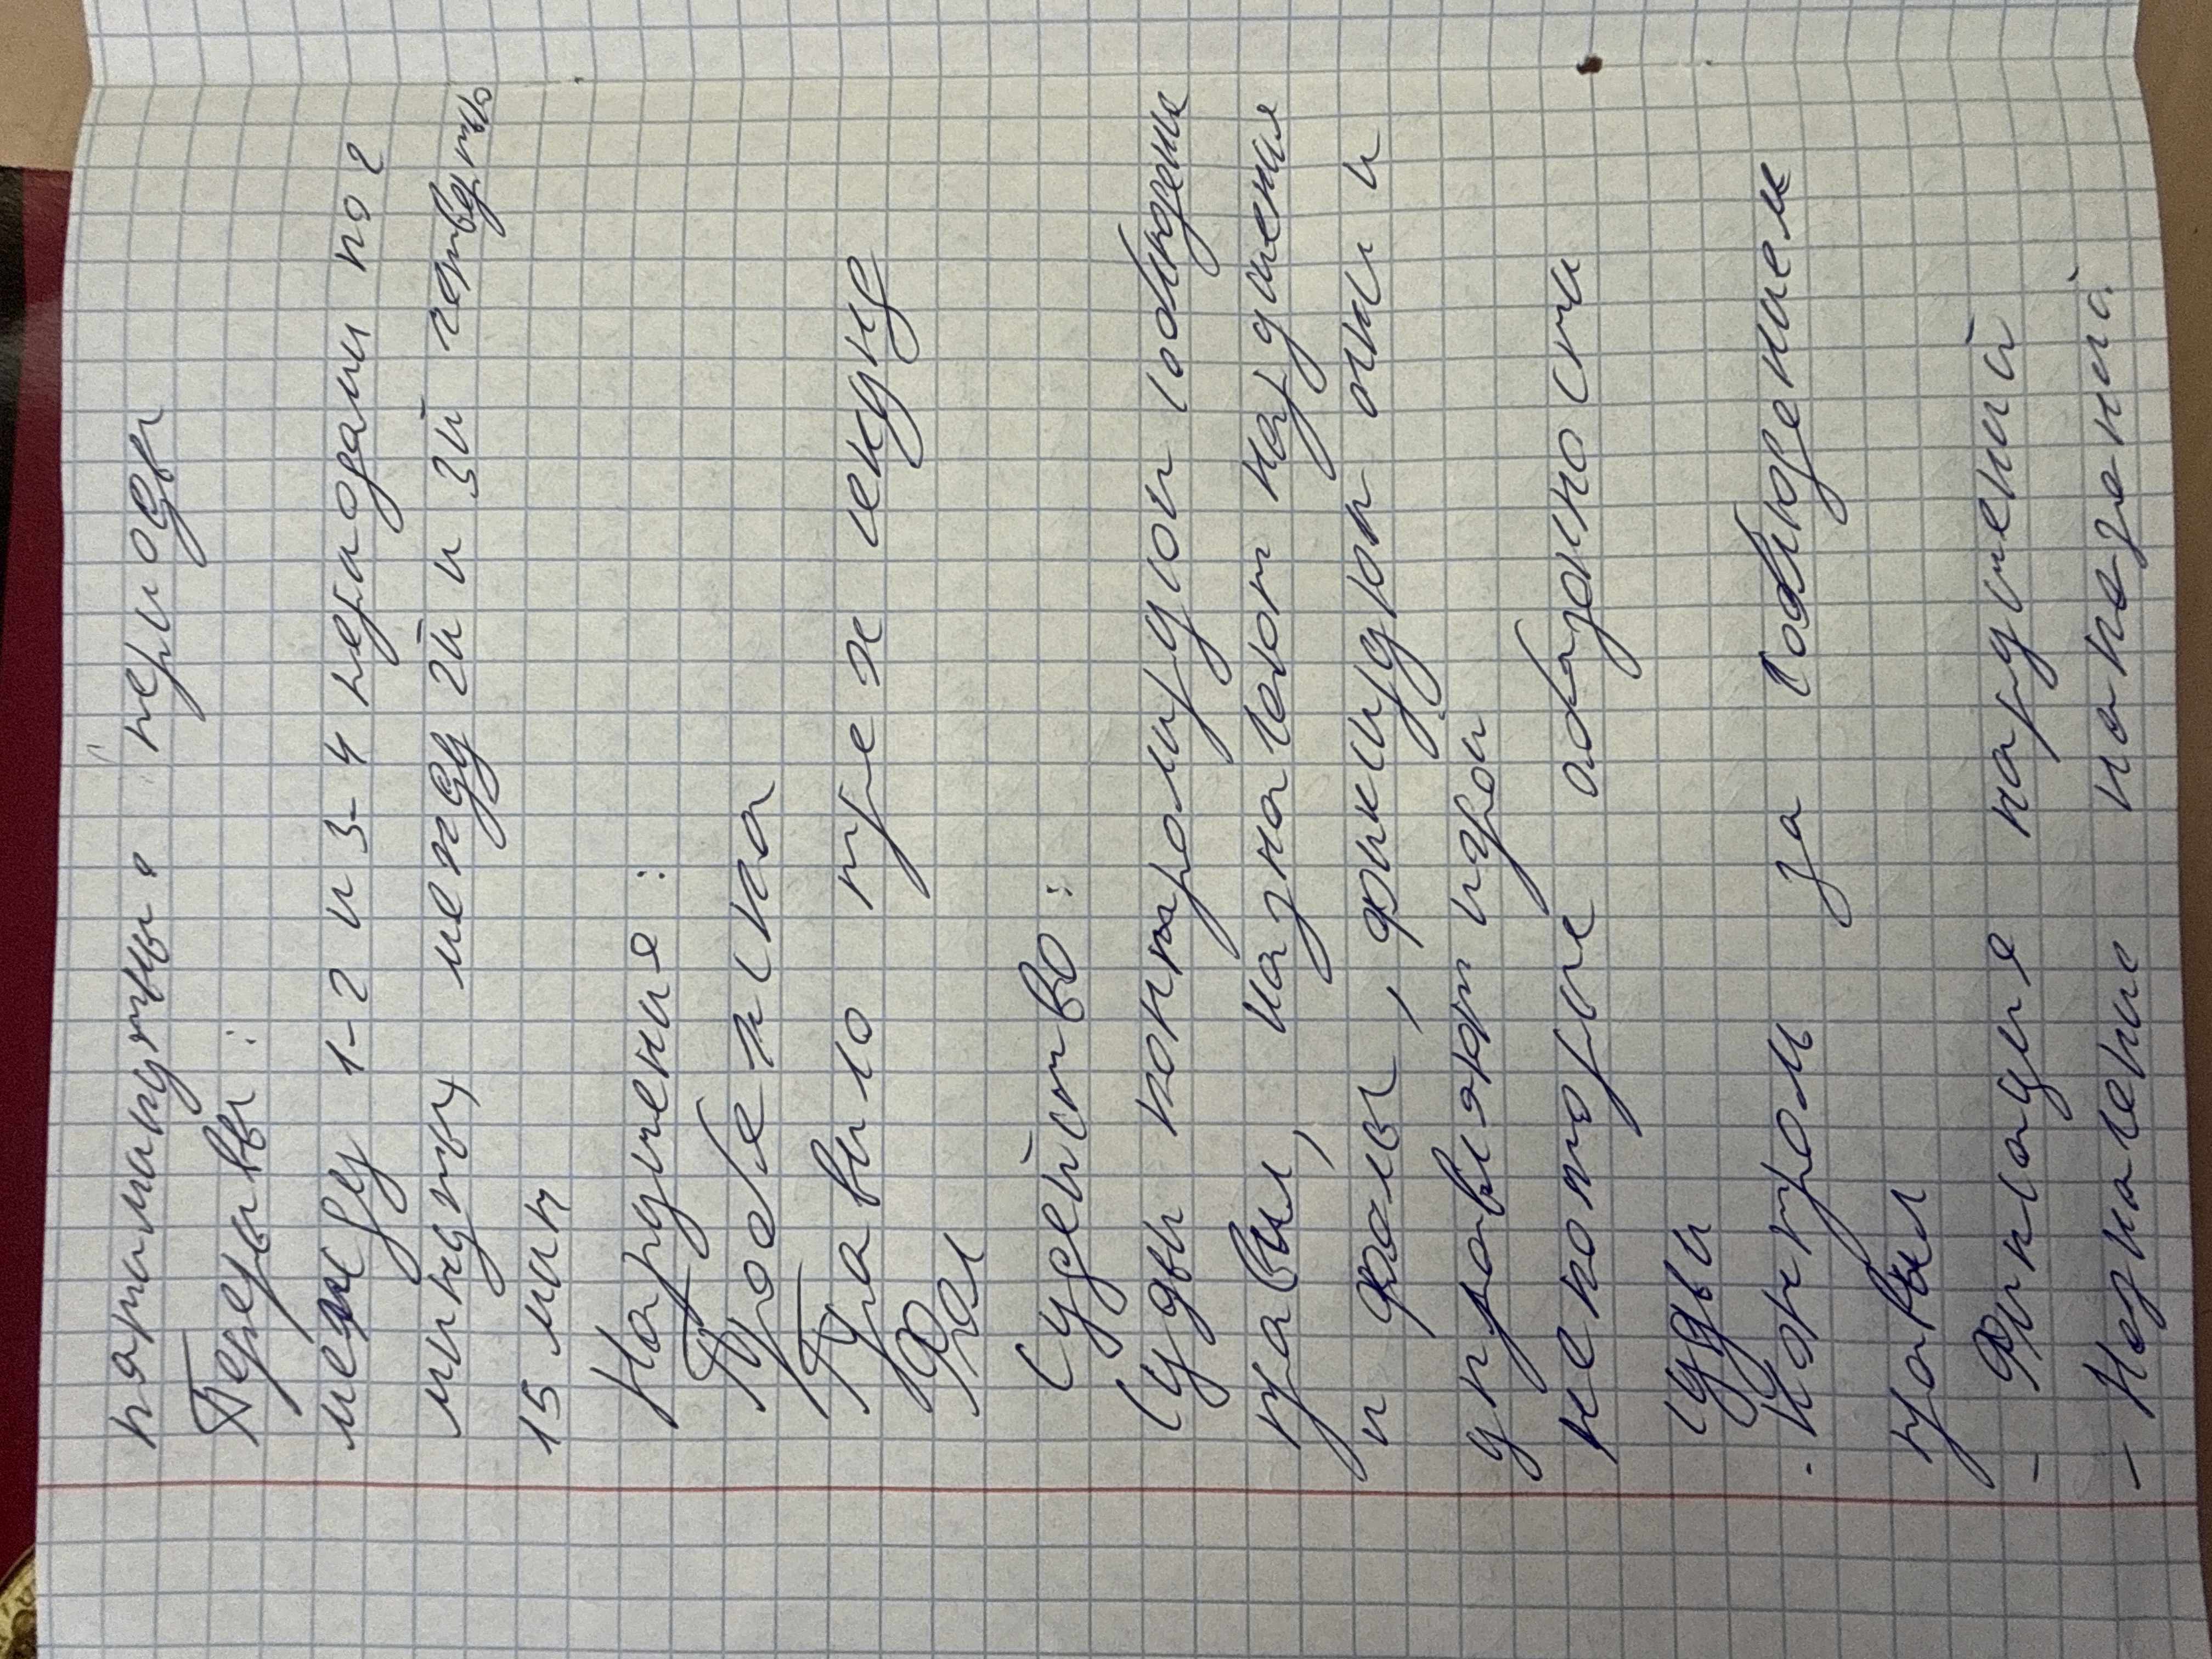 пятиминутные периоды
Перерывы:
между 1-2 и 3-4 периодами по 2
минуты между 2й и 3й четверть
15 мин
Нарушения:
Пробежка
Правило трех секунд
Фол
Судейство:
Судьи контролируют соблюдение
правил, назначают нарушения
и фолы, фиксируют очки и
управляют игрой
некоторые обязанности
судьи
· Контроль за соблюдением
правил
- Фиксация нарушений
- Назначение наказаний.